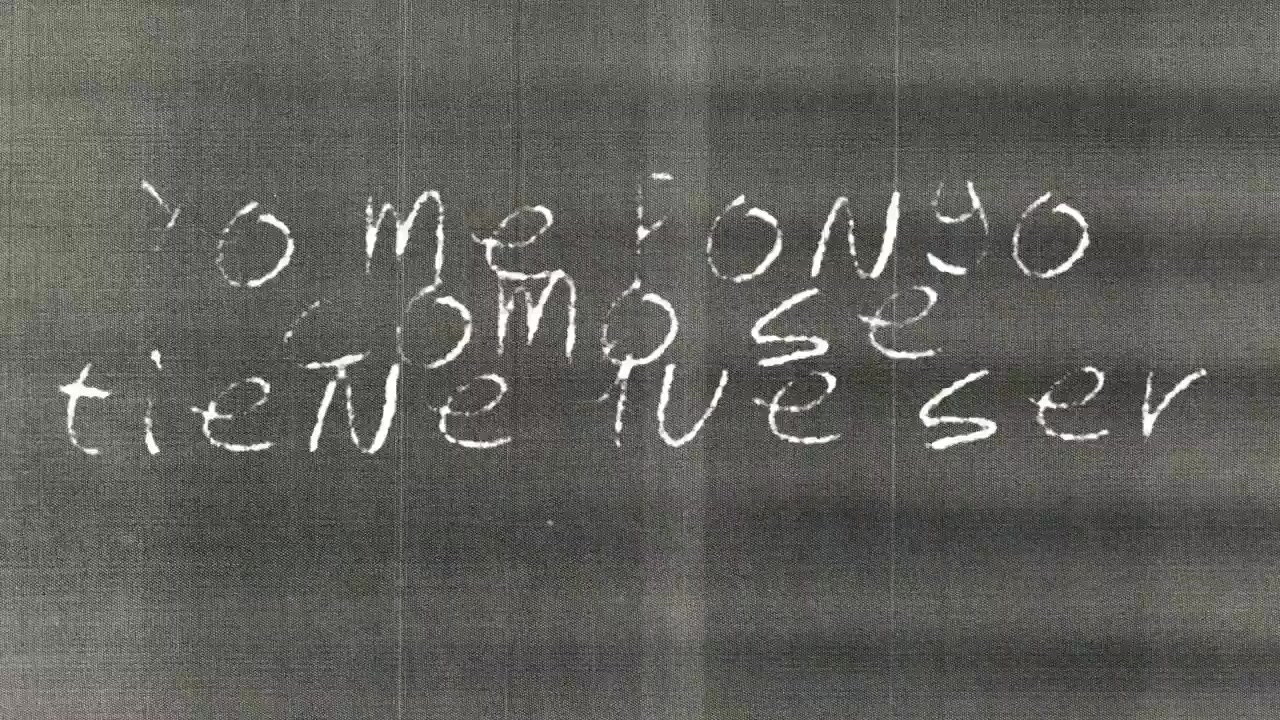 Yo me pongo
como se
tiene que ser